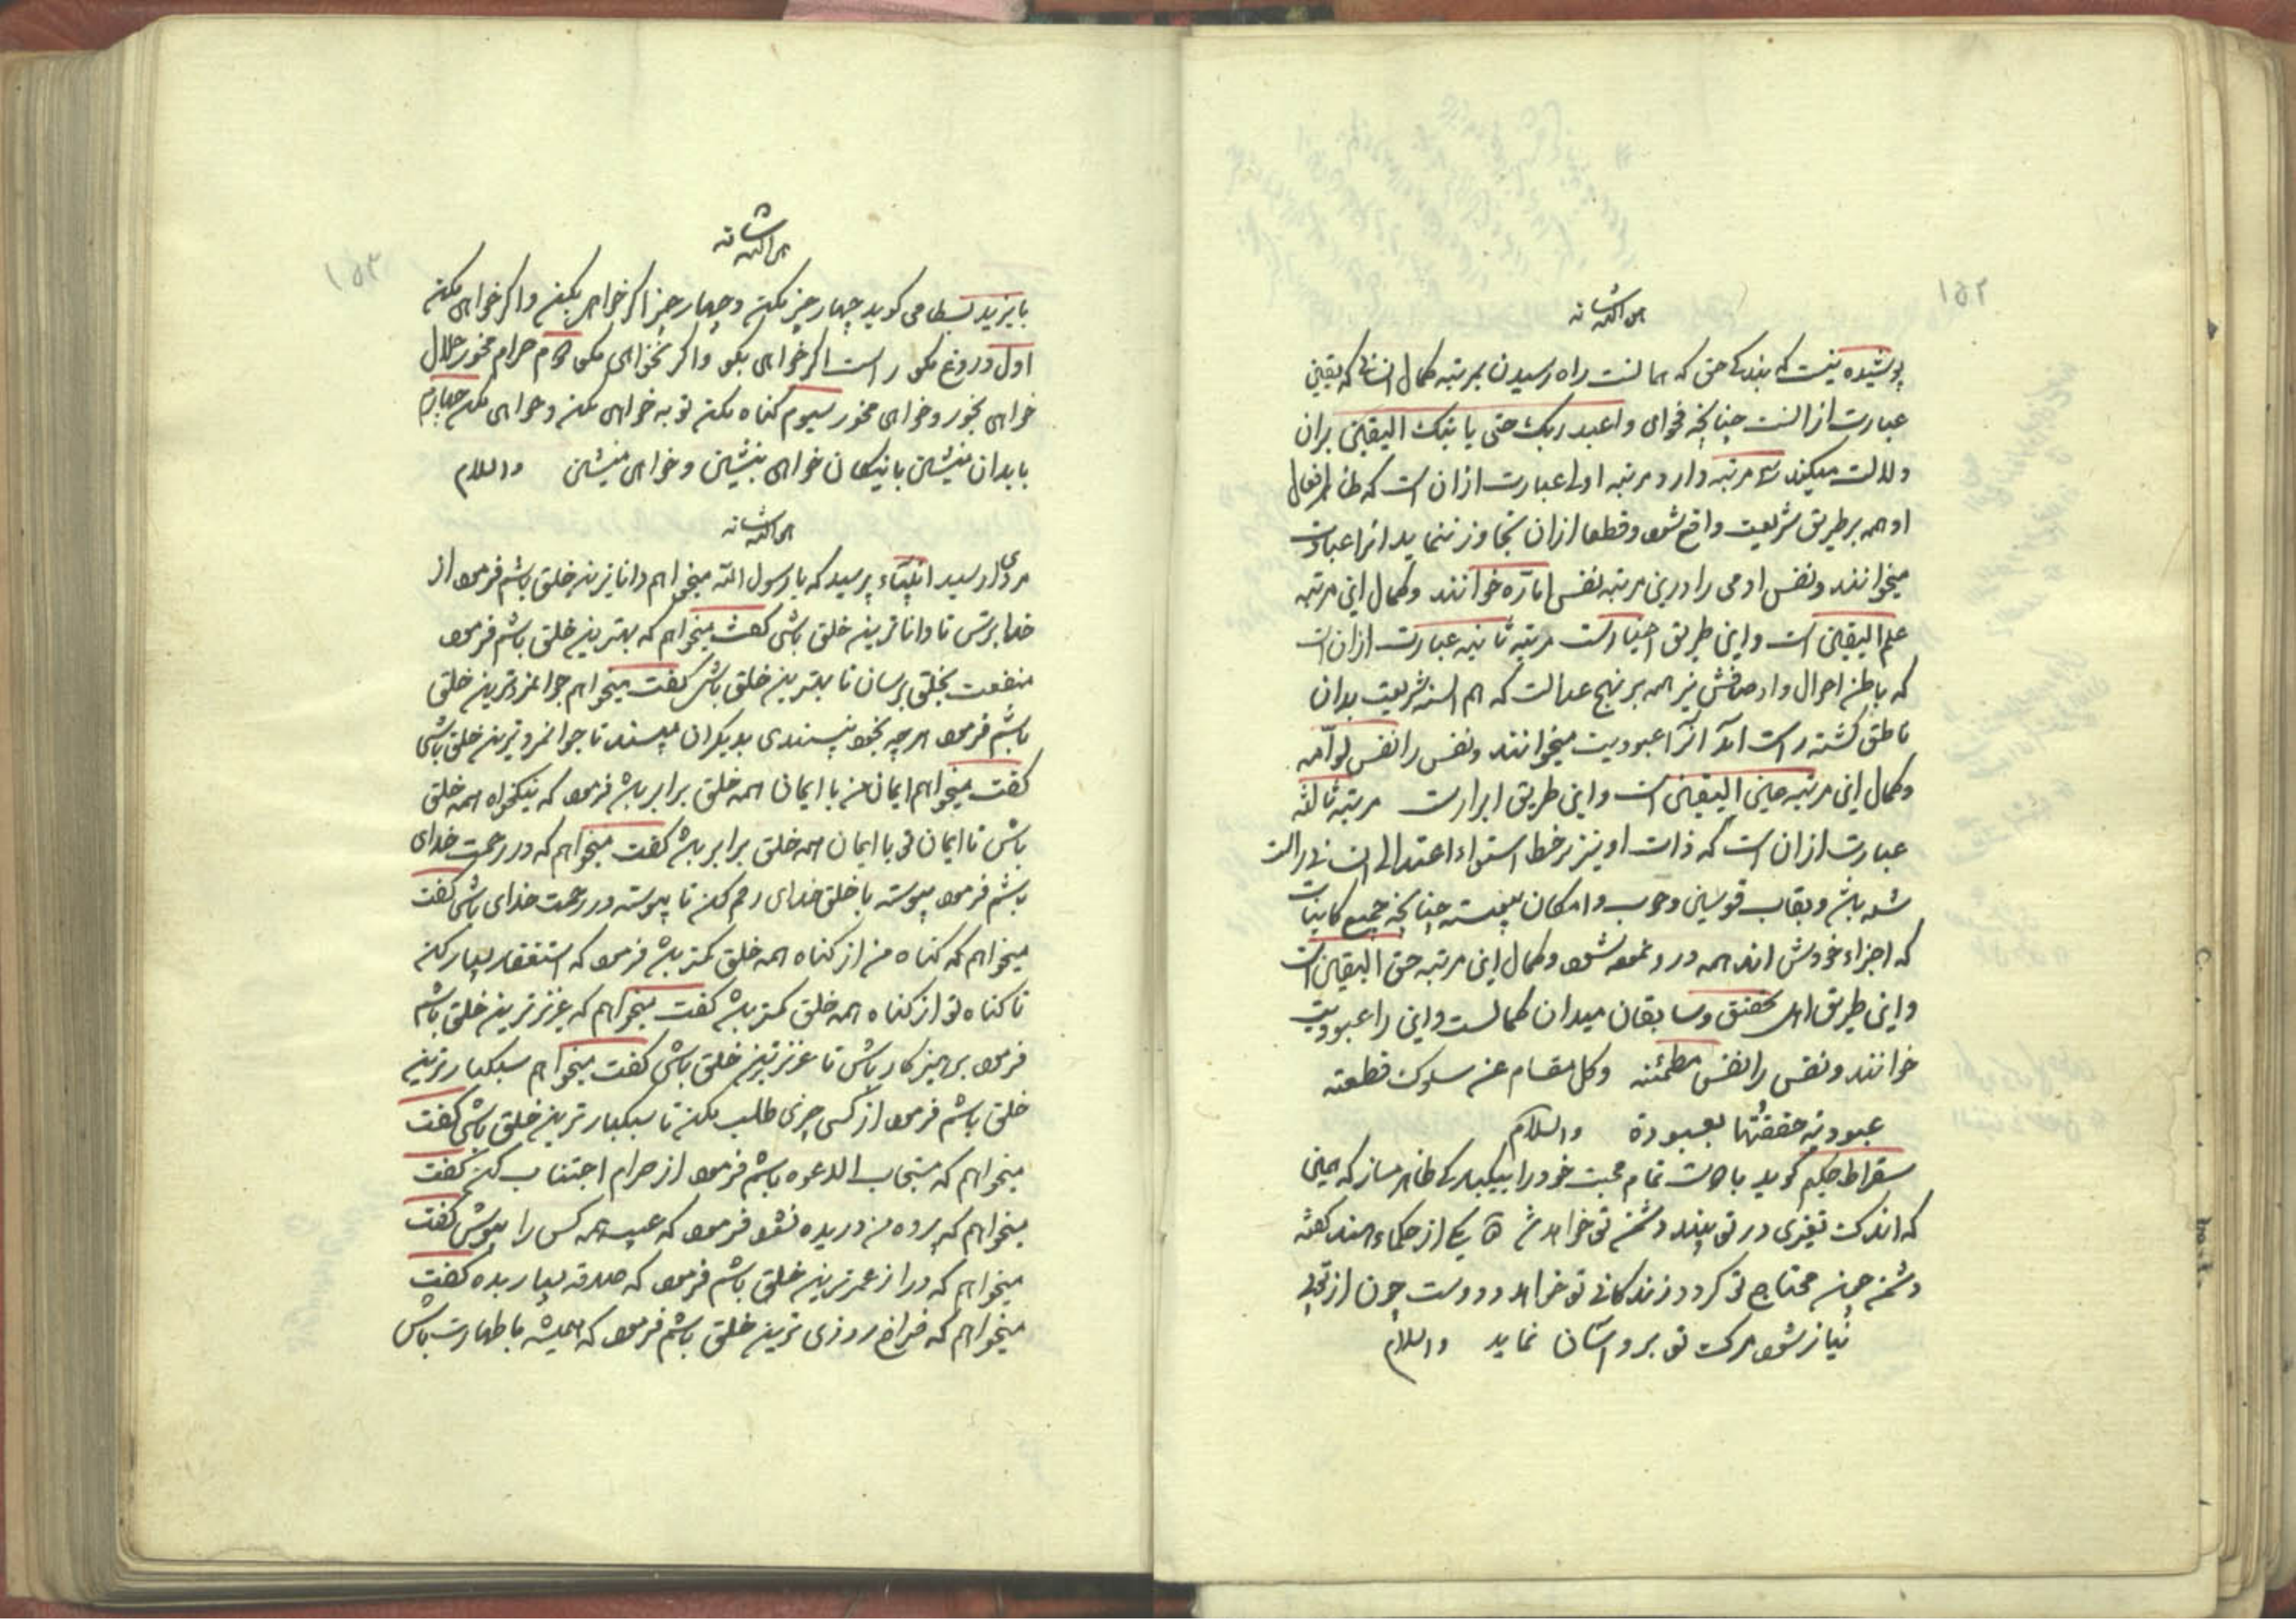 ١۵٢
هو الله شانه
پوشیده نیست که بندکی حق که همانست راه رسیدن بمرتبه کمال انسانی که یقین
عبارت از انست چنانچه فحوای واعبد ربک حتی یاتیک الیقین بران
دلالت میکند سه مرتبه دارد مرتبه اولی عبارت ازان است که ظاهر افعال
او همه بر طریق شریعت واقع شود و قطعا ازان تجاوز ننماید انرا عبادت
میخوانند و نفس ادمی را درین مرتبه نفس اماّره خوانند و کمال این مرتبه
علم الیقین است و این طریق اخیارست مرتبه ثانیه عبارت ازان است
که باطن احوال و اوصافش نیز همه بر نهج عدالت که هم السنه شریعت بدان
ناطق کشته راست آمد آنرا عبودیت میخوانند و نفس را نفس لوّامه
و کمال این مرتبه عین الیقین است و این طریق ابرارست مرتبه ثالثه
عبارت ازان است که ذات او نیز بر خط استواء اعتدالی انسانی راست
شده باشد و بقاب قوسین وجوب و امکان پیوسته چنانچه جمیع کاینات
که اجزاء خودش اند همه درو نموده شود و کمال این مرتبه حق الیقین است
و این طریق اهل تحقیق و سابقان میدان کمالست و این را عبودیت
خوانند و نفس را نفس مطمئنه وکل مقام عن سلوک قطعته
عبودیه حققتها بعبودة والسلام
سقراط حکیم کوید با دوست تمام محبت خود را بیکبارکی ظاهر مساز که همین
که اندک تغیری در تو بیند دشمن تو خواهد شد یکی از حکماء هند کفته
دشمن چون محتاج تو کردد زندکانی تو خواهد و دوست چون از تو بی
نیاز شود مرک تو برو آسان نماید والسلام
١۵٣
هو الله شانه
بایزید بسطامی کوید چهار چیز مکن و چهار چیز اکر خواهی بکن و اکر خواهی مکن
اول دروغ مکو راست اکر خواهی بکو و اکر نخواهی مکو دوم حرام مخور حلال
خواهی بخور و خواهی مخور سیوم کناه مکن توبه خواهی بکن و خواهی مکن چهارم
با بدان منشین با نیکان خواهی بنشین و خواهی منشین والسلام
هو الله شانه
مردی از سید انبیاء پرسید که یا رسول الله میخواهم داناترین خلق باشم فرمود از
خدا بترس تا داناترین خلق باشی کفت میخواهم که بهترین خلق باشم فرمود
منفعت بخلق برسان تا بهترین خلق باشی کفت میخواهم جوانمردترین خلق
باشم فرمود هرچه بخود نپسندی بدیکران مپسند تا جوانمردترین خلق باشی
کفت میخواهم ایمان من با ایمان همه خلق برابر باشد فرمود که نیکخواه همه خلق
باش تا ایمان تو با ایمان همه خلق برابر باشد کفت میخواهم که در رحمت خدای
باشم فرمود پیوسته با خلق خدای رحم کن تا پیوسته در رحمت خدای باشی کفت
میخواهم که کناه من از کناه همه خلق کمتر باشد فرمود که استغفار بسیار کن
تا کناه تو از کناه همه خلق کمتر باشد کفت میخواهم که عزیزترین خلق باشم
فرمود پرهیزکار باش تا عزیزترین خلق باشی کفت میخواهم سبکبارترین
خلق باشم فرمود از کسی چیزی طلب مکن تا سبکبارترین خلق باشی کفت
میخواهم که مستجاب الدعوه باشم فرمود از حرام اجتناب کن کفت
میخواهم که پرده من دریده نشود فرمود که عیب همه کس را بپوش کفت
میخواهم که دراز عمرترین خلق باشم فرمود که صدقه بسیار بده کفت
میخواهم که فراخ روزی ترین خلق باشم فرمود که همیشه با طهارت باش